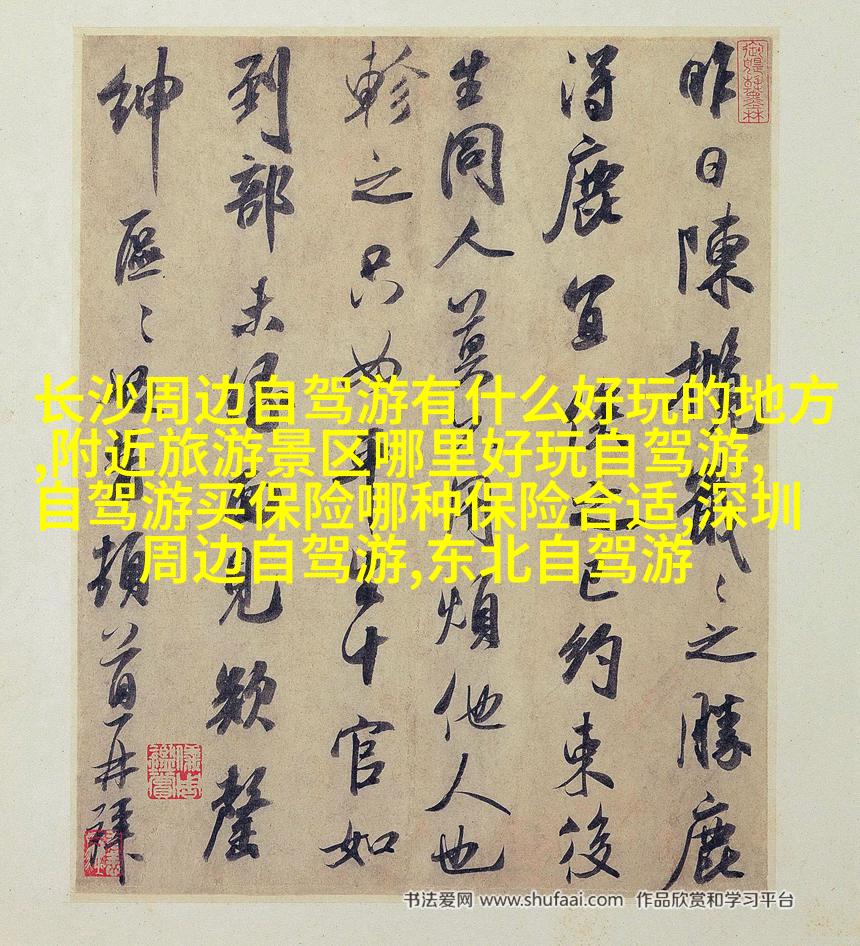 昨日陳戢〻之勝鹿
得鹿宜之已約束後
生同人莫煩他人也
軫之只如十官如
到部未見欵罄
紳區〻頓首再拜
长沙周边自驾游有什么好玩的地方
,附近旅游景区哪里好玩自驾游,
自驾游买保险哪种保险合适,深圳
周边自驾游,东北自驾游
书法爱网 www.shufaai.com 作品欣赏和学习平台